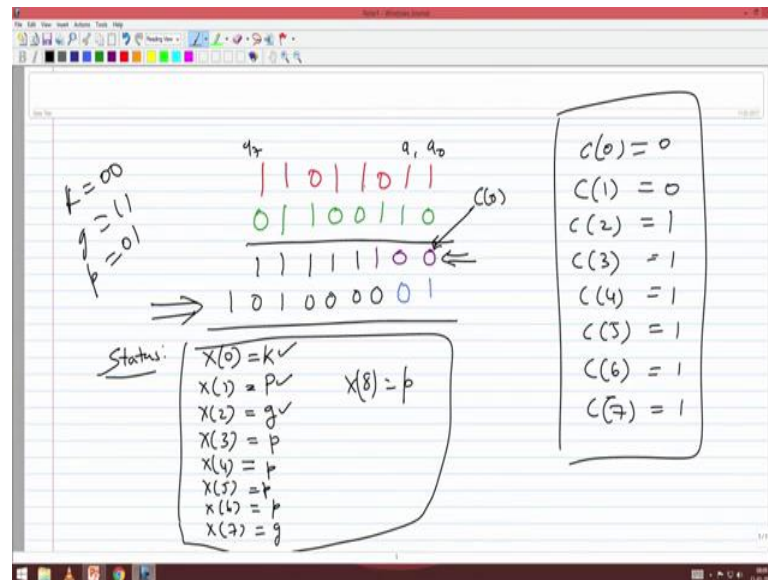 Note1 - Windows Journal
File Edit View Insert Actions Tools Help
Reading View
k = 00
g = 11
p = 01
a7 a1 a0
1 1 0 1 1 0 1 1
0 1 1 0 0 1 1 0
C(0)
1 1 1 1 1 1 0 0
1 0 1 0 0 0 0 0 1
Status:
x(0) = k ✓
x(1) = p ✓
x(2) = g ✓
x(3) = p
x(4) = p
x(5) = p
x(6) = p
x(7) = g
x(8) = p
C(0) = 0
C(1) = 0
C(2) = 1
C(3) = 1
C(4) = 1
C(5) = 1
C(6) = 1
C(7) = 1